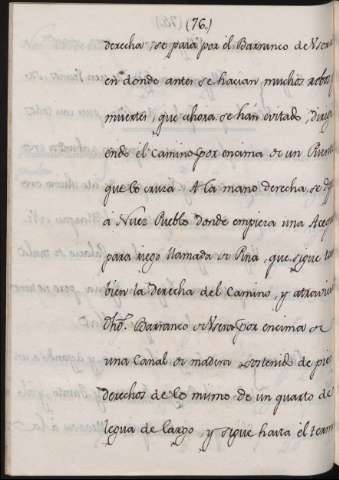 (76.)
derecha, se pasa por el Barranco de Usera
en donde antes se hacian muchos robos,
muertes, que ahora se han evitado, dirigi
endo el camino por encima de un Puente
que lo cruza. A la mano derecha se deja
a Nuez Pueblo donde empieza una Acequia
para riego llamada de Pina, que sigue tam
bien la derecha del camino, y atraviesa
dho. Barranco de Usera por encima de
una Canal de madera sostenida de pies
derechos de lo mismo de un quarto de
legua de largo, y sigue hasta el term